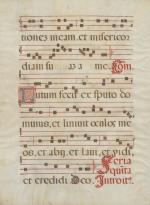 tiones meam. et misericor
diam su a me Com.
Lutum fecit ex sputo do
minus, et linivit oculos me
os, et abij, et lavi, et vidi
et credidi Deo. Introit.